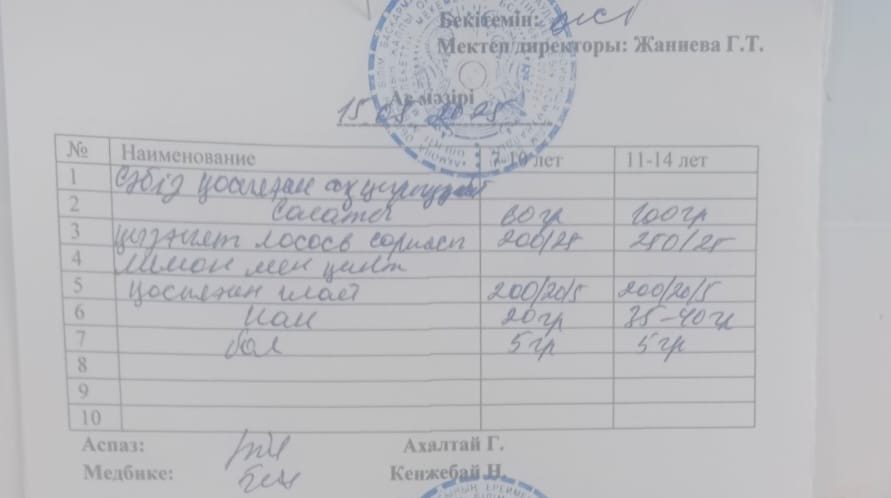 Бекітемін:
Мектеп директоры: Жаниева Г.Т.
Ас мәзірі
15.05.2025
№ Наименование 7-10 лет 11-14 лет
1 Сәбіз қосылған ақ
2 салаты 60гр 100гр
3 лосось сорпасы 200/25 250/25
4 лимон мен
5 қосылған шай 200/20/5 200/20/5
6 нан 20гр 35-40гр
7 бал 5гр 5гр
8
9
10
Аспаз: Ахалтай Г.
Медбике: Кенжебай Н.